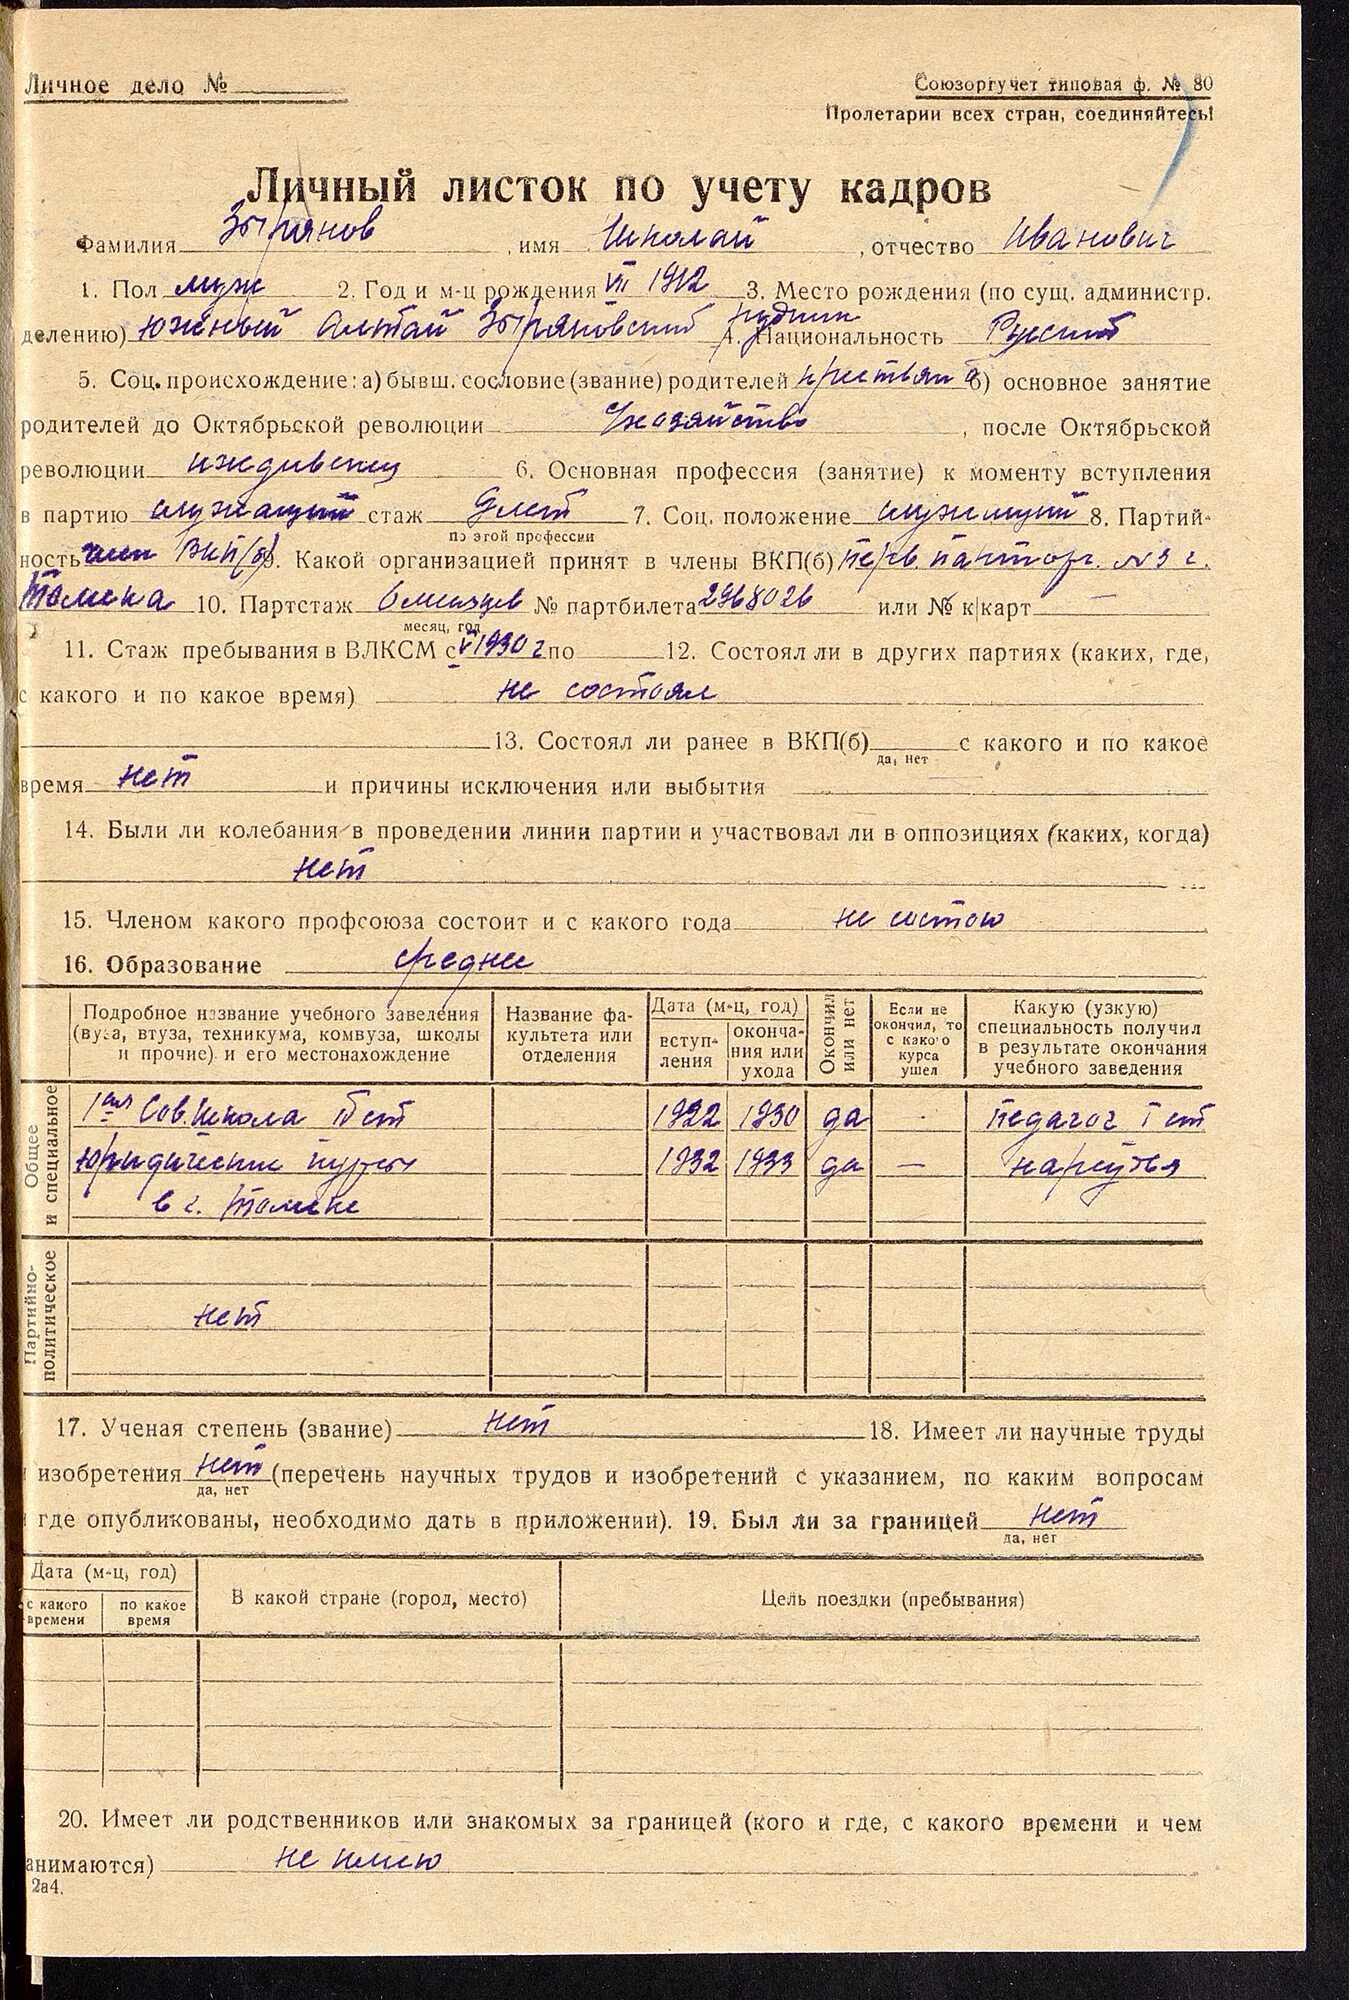 Личное дело №
Союзоргучет типовая ф. № 30
Пролетарии всех стран, соединяйтесь!
Личный листок по учету кадров
Фамилия Зырянов, имя Николай, отчество Иванович
1. Пол муж 2. Год и м-ц рождения VII 1912 3. Место рождения (по сущ. администр.
делению) Южный Алтай Зыряновский рудник 4. Национальность Русский
5. Соц. происхождение: а) бывш. сословие (звание) родителей крестьян б) основное занятие
родителей до Октябрьской революции с/хозяйство, после Октябрьской
революции иждивенец 6. Основная профессия (занятие) к моменту вступления
в партию служащий стаж 9 лет 7. Соц. положение служащий 8. Партий-
по этой профессии
ность член ВКП(б) 9. Какой организацией принят в члены ВКП(б) перв. парторг. №3 г.
Томска 10. Партстаж 6 месяцев № партбилета 2968026 или № к|карт —
месяц, год
11. Стаж пребывания в ВЛКСМ с V 1930 г по 12. Состоял ли в других партиях (каких, где,
с какого и по какое время) не состоял
13. Состоял ли ранее в ВКП(б) с какого и по какое
да, нет
время нет и причины исключения или выбытия
14. Были ли колебания в проведении линии партии и участвовал ли в оппозициях (каких, когда)
нет
15. Членом какого профсоюза состоит и с какого года не состою
16. Образование среднее
Подробное название учебного заведения (вуза, втуза, техникума, комвуза, школы и прочие) и его местонахождение
Название факультета или отделения
Дата (м-ц, год)
вступ-ления
оконча-ния или ухода
Окончил или нет
Если не окончил, то с какого курса ушел
Какую (узкую) специальность получил в результате окончания учебного заведения
Общее и специальное
1ая Сов. школа II ст 1922 1930 да - Педагог I ст
Юридические курсы 1932 1933 да — нарсудья
в г. Томске
Партийно-политическое
нет
17. Ученая степень (звание) нет 18. Имеет ли научные труды
и изобретения нет (перечень научных трудов и изобретений с указанием, по каким вопросам
да, нет
и где опубликованы, необходимо дать в приложении). 19. Был ли за границей нет
да, нет
Дата (м-ц, год)
с какого времени
по какое время
В какой стране (город, место)
Цель поездки (пребывания)
20. Имеет ли родственников или знакомых за границей (кого и где, с какого времени и чем
занимаются) не имею
2а4.